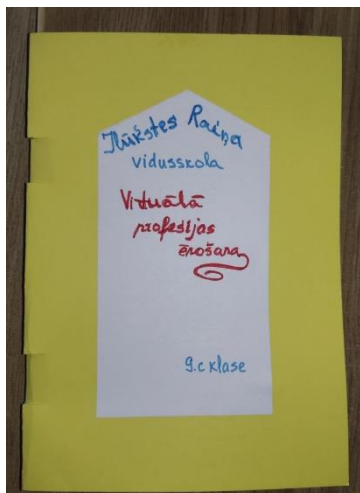 Ilūkstes Raiņa
vidusskola
Vituālā
profesijas
ēnošana
9.c klase